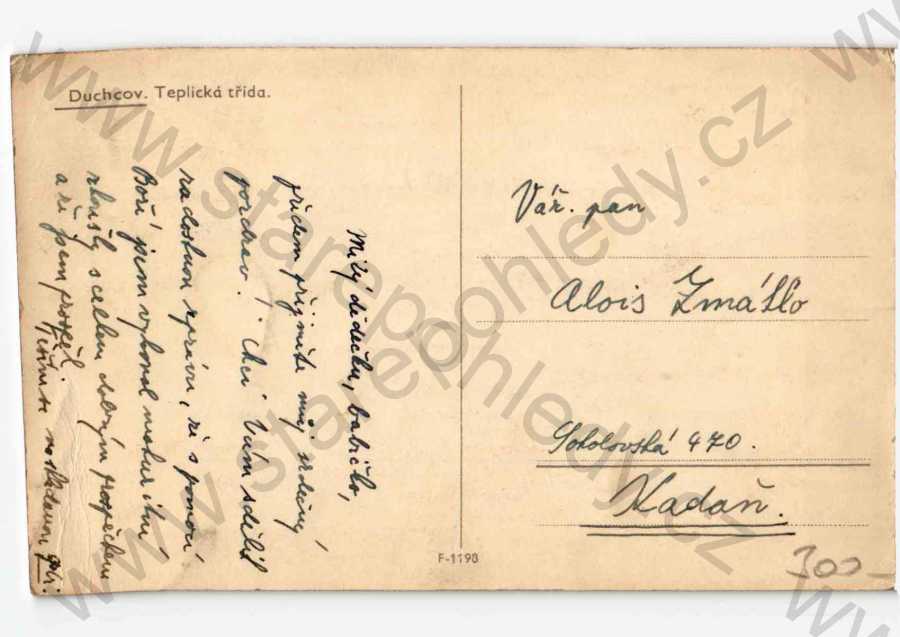 Duchcov. Teplická třída.
Milý dědečku, babičko,
předem přijměte můj srdečný
pozdrav. Chci Vám sdělit
radostnou zprávu, že s pomocí
Boží jsem vykonal maturitní
zkoušky s celkem dobrým prospěchem
a že jsem prospěl.
Těším se na shledanou
Vář. pan
Alois Zmátlo
Sokolovská 470.
Kadaň.
F-1198
300-
www.starepohledy.cz
www.starepohledy.cz